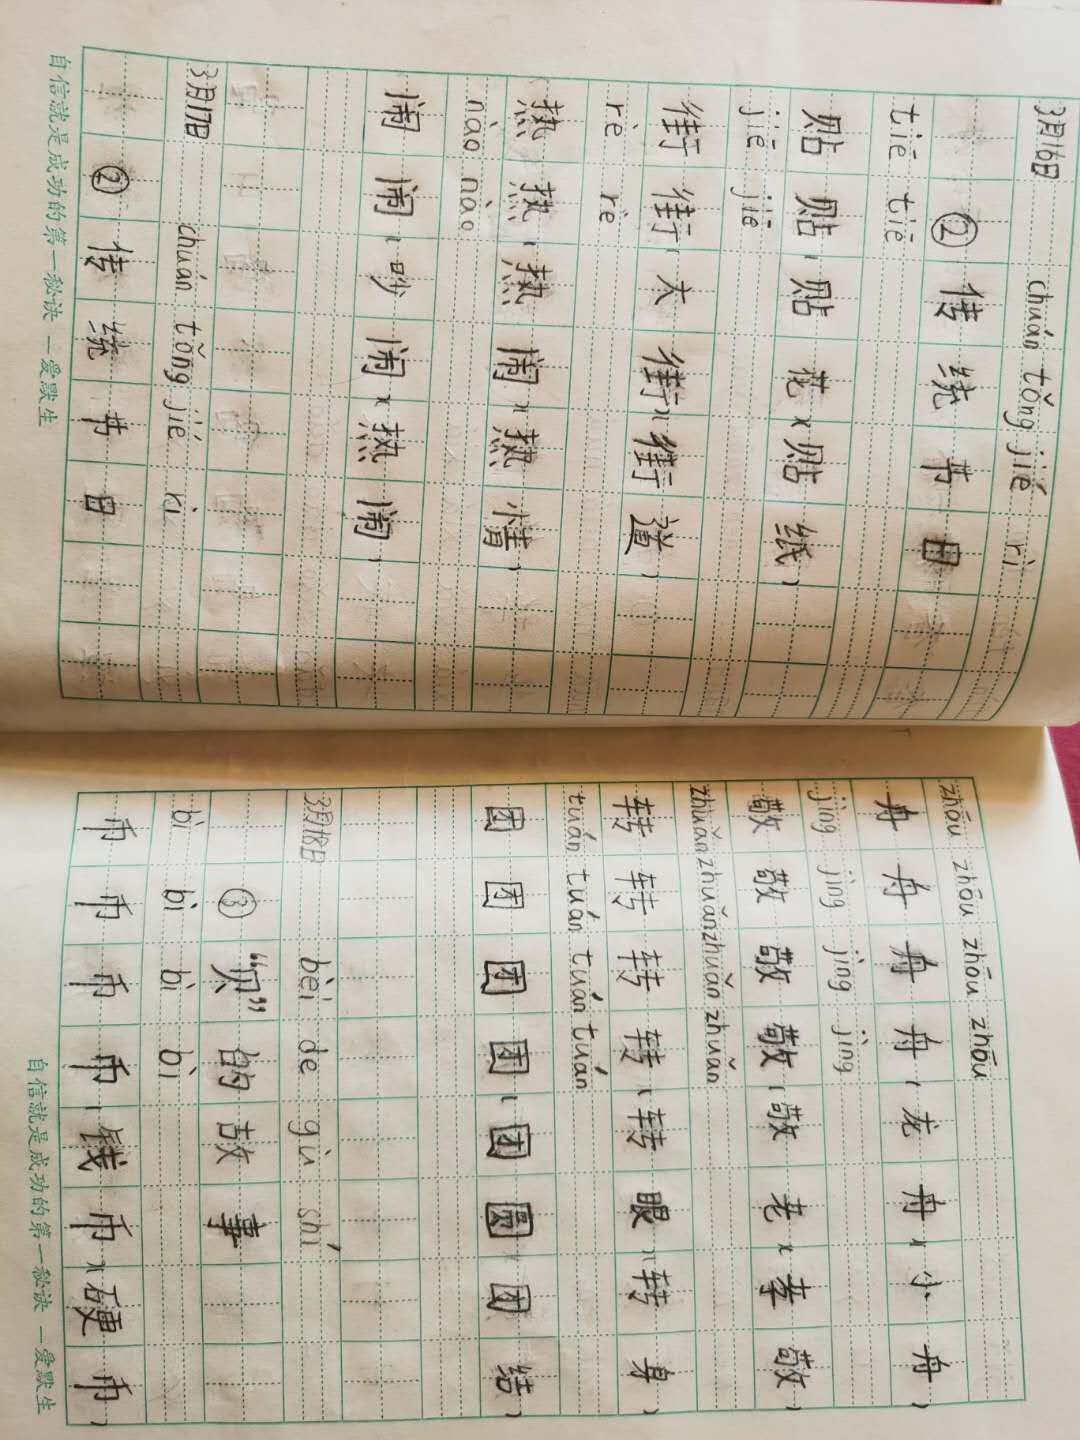 3月16日 chuán tǒng jié rì
② 传统节日
tiē tiē
贴贴(贴花)(贴纸)
jiē jiē
街街(大街)(街道)
rè rè
热热(热闹)(热情)
nào nào
闹闹(吵闹)(热闹)
3月17日 chuán tǒng jié rì
② 传统节日
自信就是成功的第一秘诀 —爱默生
zhōu zhōu zhōu zhōu
舟舟舟舟(龙舟)(小舟)
jìng jìng jìng jìng
敬敬敬敬(敬老)(孝敬)
zhuǎn zhuǎn zhuǎn zhuǎn
转转转转(转眼)(转身)
tuán tuán tuán tuán
团团团团(团圆)(团结)
3月18日 bèi de gù shí
③ “贝”的故事
bì bì bì bì
币币币币(钱币)(硬币)
自信就是成功的第一秘诀 —爱默生